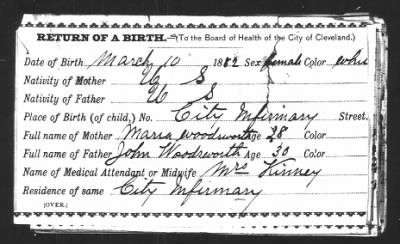 RETURN OF A BIRTH.—(To the Board of Health of the City of Cleveland.)
Date of Birth March 10 1882 Sex female Color white
Nativity of Mother U S
Nativity of Father U S
Place of Birth (of child,) No. City Infirmary Street.
Full name of Mother Maria Woodsworth Age 28 Color
Full name of Father John Woodsworth Age 30 Color
Name of Medical Attendant or Midwife Mrs Kinney
Residence of same City Infirmary
[OVER.]